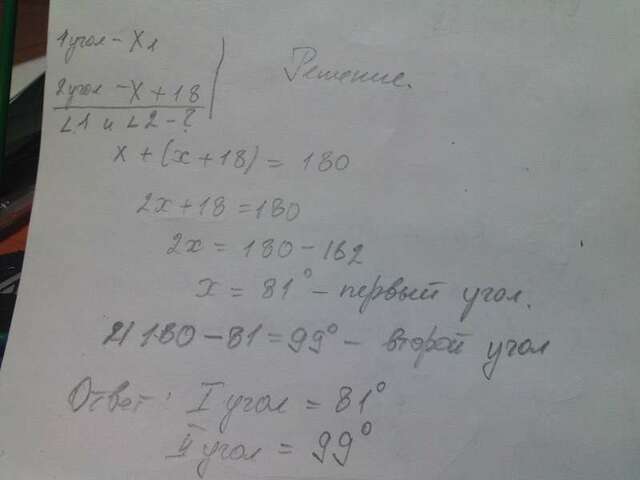 1 угол - x₁
2 угол - x + 18
∠1 и ∠2 - ?
Решение.
x + (x + 18) = 180
2x + 18 = 180
2x = 180 - 162
x = 81° - первый угол.
2) 180 - 81 = 99° - второй угол
Ответ: I угол = 81°
II угол = 99°